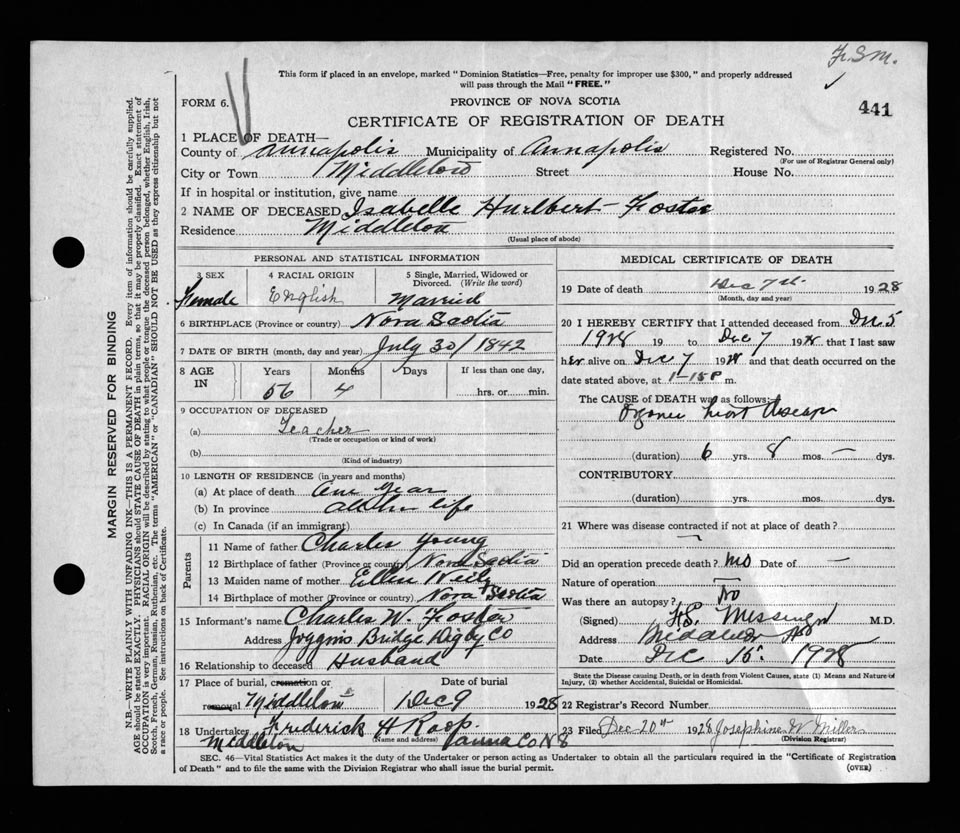 Fr. S. M.
This form if placed in an envelope, marked "Dominion Statistics—Free, penalty for improper use $300," and properly addressed
will pass through the Mail "FREE."
FORM 6.
PROVINCE OF NOVA SCOTIA
441
CERTIFICATE OF REGISTRATION OF DEATH
1 PLACE OF DEATH—
County of Annapolis Municipality of Annapolis Registered No.
(For use of Registrar General only)
City or Town Middleton Street House No.
If in hospital or institution, give name
2 NAME OF DECEASED Isabelle Hurlbert-Foster
Residence Middleton
(Usual place of abode)
PERSONAL AND STATISTICAL INFORMATION
3 SEX 4 RACIAL ORIGIN 5 Single, Married, Widowed or Divorced. (Write the word)
Female English Married
6 BIRTHPLACE (Province or country) Nova Scotia
7 DATE OF BIRTH (month, day and year) July 30/1842
8 AGE IN Years Months Days If less than one day,
56 4 hrs. or min.
9 OCCUPATION OF DECEASED
(a) Teacher
(Trade or occupation or kind of work)
(b)
(Kind of industry)
10 LENGTH OF RESIDENCE (in years and months)
(a) At place of death One Year
(b) In province All her life
(c) In Canada (if an immigrant)
Parents
11 Name of father Charles Young
12 Birthplace of father (Province or country) Nova Scotia
13 Maiden name of mother Ellen
14 Birthplace of mother (Province or country) Nova Scotia
15 Informant's name Charles W. Foster
Address Joggins Bridge Digby Co
16 Relationship to deceased Husband
17 Place of burial, cremation or Date of burial
removal Middleton Dec 9 1928
18 Undertaker Frederick H Roop.
(Name and address)
Middleton Anna Co NS
MEDICAL CERTIFICATE OF DEATH
19 Date of death Dec 7th. 1928
(Month, day and year)
20 I HEREBY CERTIFY that I attended deceased from Dec 5
1928 19 to Dec 7 1928 that I last saw
her alive on Dec 7 1928 and that death occurred on the
date stated above, at 1-15 P m.
The CAUSE of DEATH was as follows:
Organic heart disease
(duration) 6 yrs. 8 mos. — dys.
CONTRIBUTORY
(duration) yrs. mos. dys.
21 Where was disease contracted if not at place of death?
Did an operation precede death? no Date of —
Nature of operation
Was there an autopsy? no
(Signed) Messenger M.D.
Address Middleton NS
Date Dec 15. 1928
State the Disease causing Death, or in death from Violent Causes, state (1) Means and Nature of
Injury, (2) whether Accidental, Suicidal or Homicidal.
22 Registrar's Record Number
23 Filed Dec 20th 1928 Josephine W Miller
(Division Registrar)
SEC. 46—Vital Statistics Act makes it the duty of the Undertaker or person acting as Undertaker to obtain all the particulars required in the "Certificate of Registration
of Death" and to file the same with the Division Registrar who shall issue the burial permit.
(OVER)
MARGIN RESERVED FOR BINDING
N.B.—WRITE PLAINLY WITH UNFADING INK—THIS IS A PERMANENT RECORD. Every item of information should be carefully supplied.
AGE should be stated EXACTLY. PHYSICIANS should STATE CAUSE OF DEATH in plain terms, so that it may be properly classified. Exact statement of
OCCUPATION is very important. RACIAL ORIGIN will be described by stating to what people or tongue the deceased person belonged, whether English, Irish,
Scotch, French, German, Russian, Ruthenian, etc. The terms "AMERICAN" or "CANADIAN" SHOULD NOT BE USED as they express citizenship but not
a race or people. See instructions on back of Certificate.